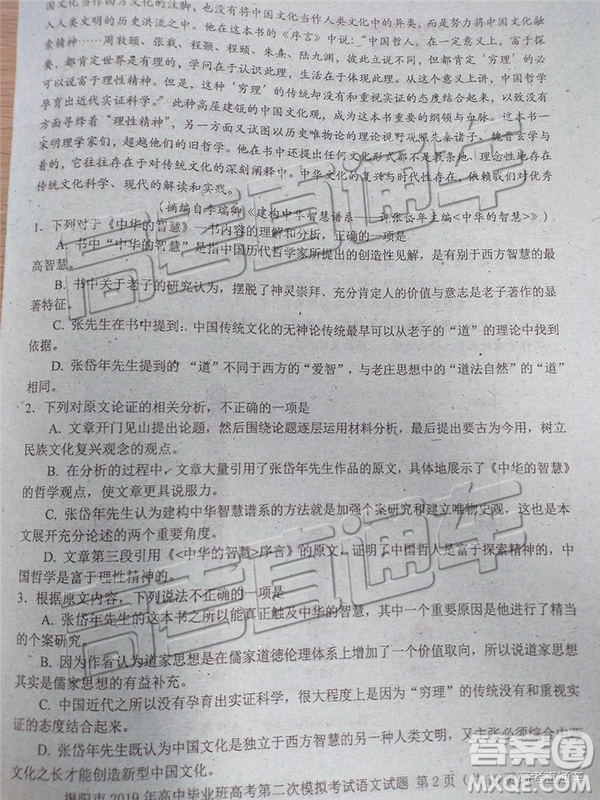 国文化当作西方文化的注脚，也没有将中国文化当作人类文化中的异类，而是努力将中国文化融
人人类文明的历史洪流之中。他在这本书的《序言》中说：“中国哲人，在一方面富于探
索精神……周敦颐、张载、程颢、程颐、朱熹、陆九渊，彼此之间虽有分歧，
，都肯定世界是有理的，学问在于认识此理，思想上虽有分歧，但都肯定‘穷理’的必
可以说富于理性精神。但是，这种‘穷理’的传统却没有和重视实证的态度结合起来，以致没有
孕育出近代实证科学。”此种高屋建瓴的中国文化观，成为这本书的纲领与血脉。这本书一
方面寻绎着“理性精神”，另一方面又试图以历史唯物论的理论视野观照先秦诸子、魏晋玄学与
宋明理学家们，超越他们的旧哲学。他在书中还提出任何文化形式都不是天才的臆造
着的，它往往存在于对传统文化的深刻阐释中。中华文化的复兴与再创造，依赖我们对优秀
传统文化科学、现代的解读和实践。
（摘编自李瑞卿《建构中华智慧谱系——评张岱年主编<中华的智慧>》）
1．下列对于《中华的智慧》一书内容的理解和分析，正确的一项是
A．书中“中华的智慧”是指中国历代哲学家所提出的创造性见解，是有别于西方智慧的最
高智慧。
B．书中关于老子的研究认为，摆脱了神灵崇拜、充分肯定人的价值与意志是老子著作的显
著特征。
C．张先生在书中提到：中国传统文化的无神论传统最早可以从老子的“道”的理论中找到
依据。
D．张岱年先生提到的“道”不同于西方的“爱智”，与老庄思想中的“道法自然”的“道”
相同。
2．下列对原文论证的相关分析，不正确的一项是
A．文章开门见山提出论题，然后围绕论题逐层运用材料分析，最后提出要古为今用，树立
民族文化复兴观念的观点。
B．在分析的过程中，文章大量引用了张岱年先生作品的原文，具体地展示了《中华的智慧》
的哲学观点，使文章更具说服力。
C．张岱年先生认为建构中华智慧谱系的方法是加强个案研究和建立唯物史观，这也是本
文展开充分论述的两个重要角度。
D．文章第三段引用《<中华的智慧>序言》的原文，证明了中国哲人是富于探索精神的，中
国哲学是富于理性精神的。
3．根据原文内容，下列说法不正确的一项是
A．张岱年先生的这本书之所以能真正触及中华的智慧，其中一个重要原因是他进行了精当
的个案研究。
B．因为作者认为道家思想是在儒家道德伦理体系不可靠的情况下加入取向，所以说道家思想
其实是儒家思想的有益补充。
C．中国近代之所以没有孕育出实证科学，很大程度上是因为“穷理”的传统没有和重视实
证的态度结合起来。
D．张岱年先生认为中国文化是西方文化的另一种人类文明，又主张必须综合中西
文化之长才能创造新型中国文化。
揭阳市2019年高中毕业班高考第二次模拟考试语文试题 第2页
高考直通车
高考直通车
高考直通车
答案圈
MXQE.COM
高考直通车